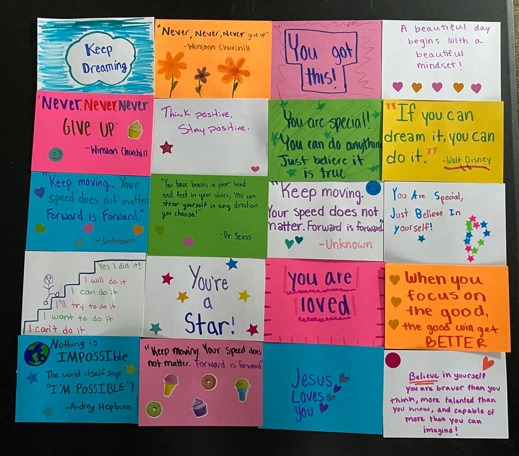 Keep
Dreaming
"Never, Never, Never give up"
-Winston Churchill
You got
this!
A beautiful day
begins with a
beautiful
mindset!
"Never, Never, Never
GIVE UP"
-Winston Churchill
Think positive.
Stay positive.
You are special!
You can do anything
Just believe it
is true
"If you can
dream it, you can
do it."
-Walt Disney
"Keep moving. Your
speed does not matter.
Forward is Forward."
-Unknown
"You have brains in your head
and feet in your shoes, You can
steer yourself in any direction
you choose!"
-Dr. Seuss
"Keep moving.
Your speed does not
matter. Forward is forward"
-Unknown
You Are Special,
Just Believe In
yourself!
Yes I did it!
I will do it
I can do it
I'll try to do it
I want to do it
I can't do it
You're
a
Star!
you are
loved
When you
focus on
the good,
the good will get
BETTER
Nothing is
IMPOSSIBLE
The world itself says
"I'M POSSIBLE"!
-Audrey Hepburn
"Keep moving. Your Speed does
not matter. Forward is forward"
Jesus
Loves
You
Believe in yourself
you are braver than you
think, more talented than
you know, and capable of
more than you can
imagine!